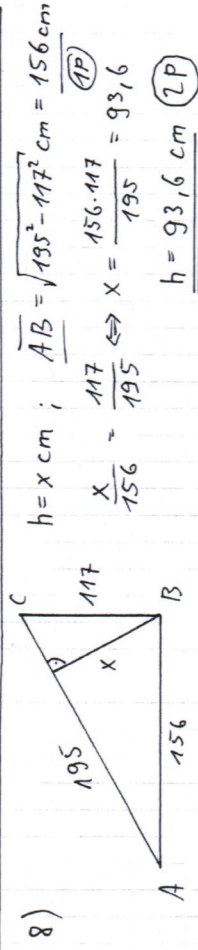 8)
C
195
117
x
A
156
B
h = x cm ; AB = √195² - 117² cm = 156 cm
1P
x/156 = 117/195 ⇔ x = 156·117/195 = 93,6
h = 93,6 cm 2P